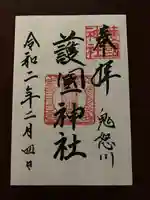 奉拝
鬼怒川
護國神社
令和二年二月四日